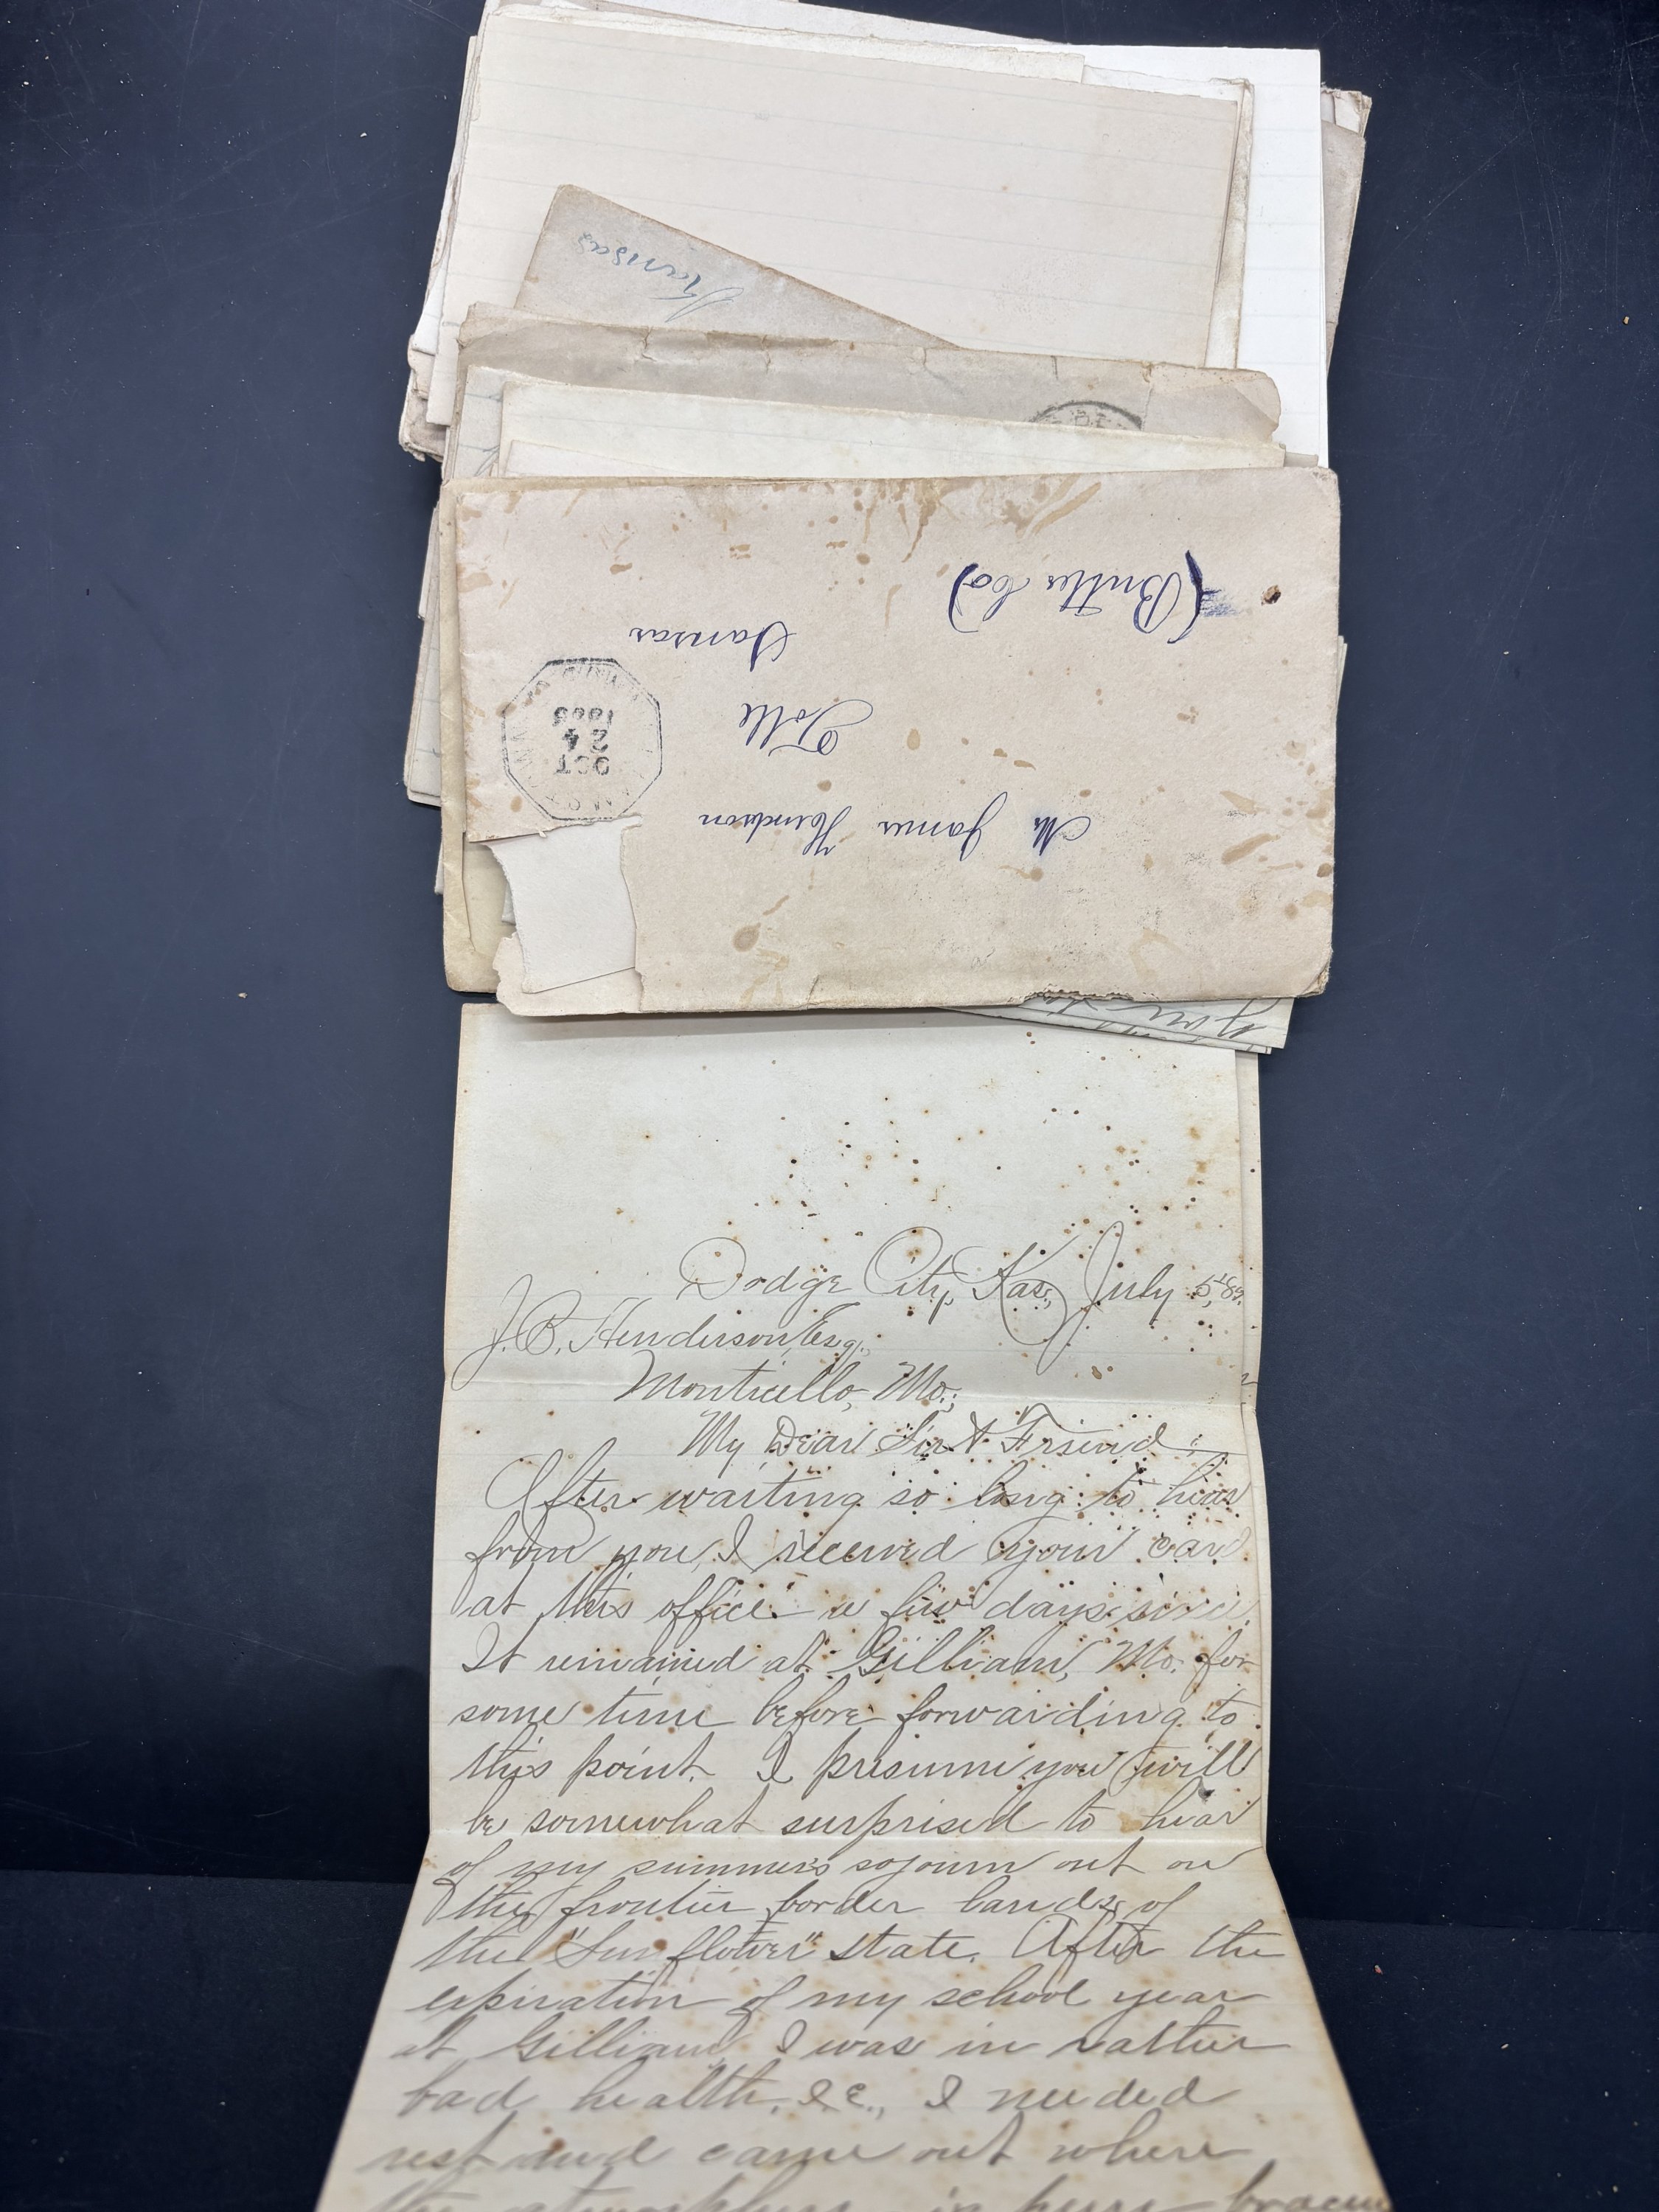 Kansas
Mr James Henderson
Tolle
Kansas
(Butler Co)
OCT
24
1885
Dodge City, Kas., July 5,
J. B. Henderson, Esq.,
Monticello, Mo.;
My Dear Sir & Friend:
After waiting so long to hear
from you, I received your card
at this office a few days since.
It remained at Gilliam, Mo. for
some time before forwarding to
this point. I presume you will
be somewhat surprised to hear
of my summer's sojourn out on
the frontier border lands of
the "Sunflower" state. After the
expiration of my school year
at Gilliam, I was in rather
bad health, I.E., I needed
rest and came out where
the atmosphere is pure